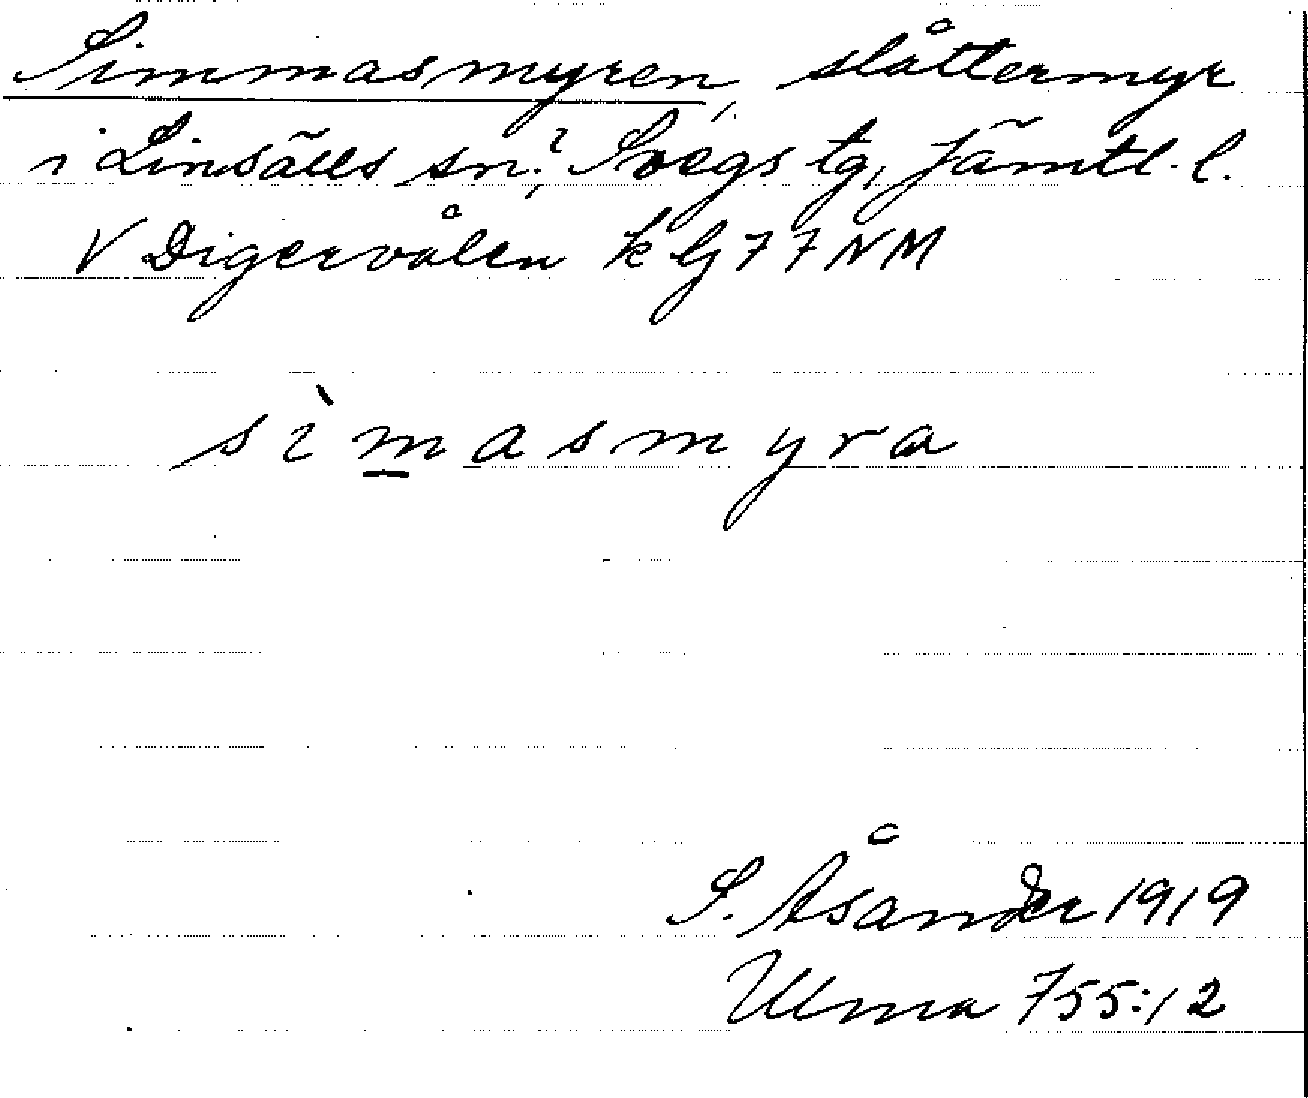 Simmasmyren, slåttermyr
i Linsälls sn?, Svegs tg, Jämtl. l.
V Digervålen k lg 77 NM
sìmasmyra
S. Åsander 1919
Ulma 755:12